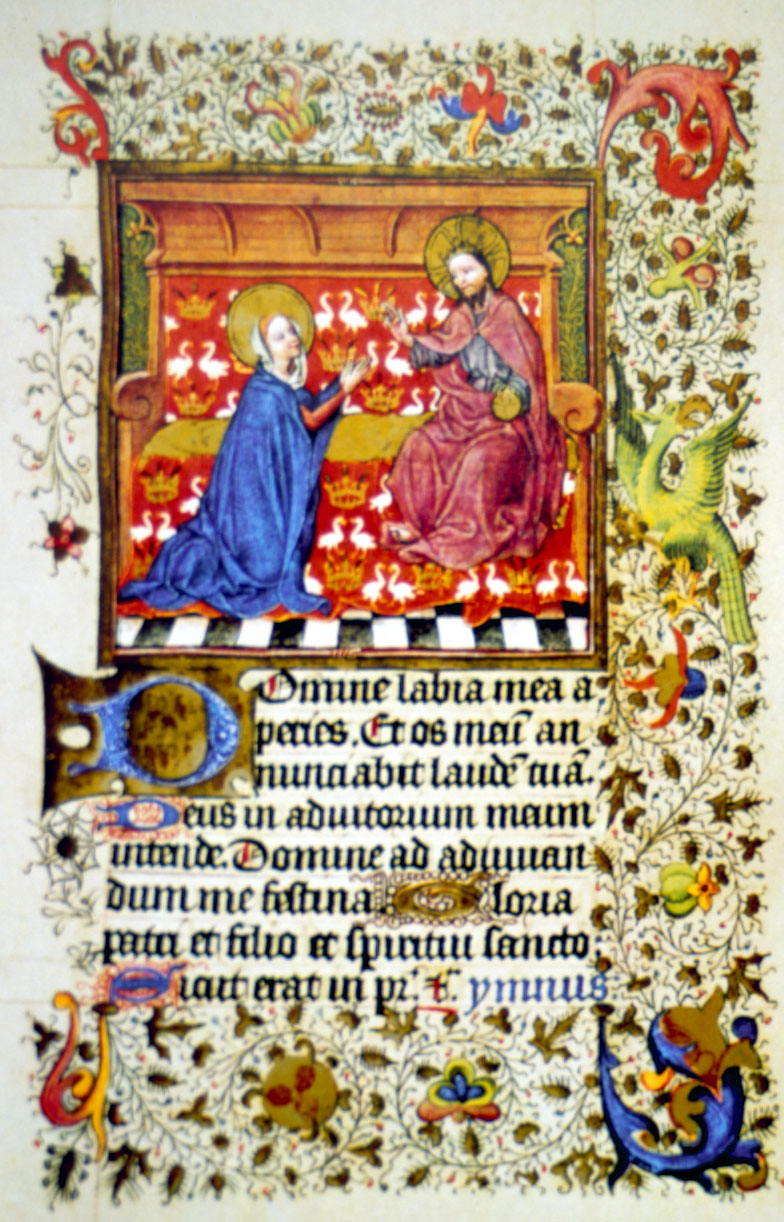 Domine labia mea a
peries. Et os meū an
nunciabit laudē tuā.
Deus in adiutorium meum
intende. Domine ad adiuuan
dum me festina. Gloria
patri et filio et spiritui sancto
Sicut erat in pr̄. et̄. ymnus